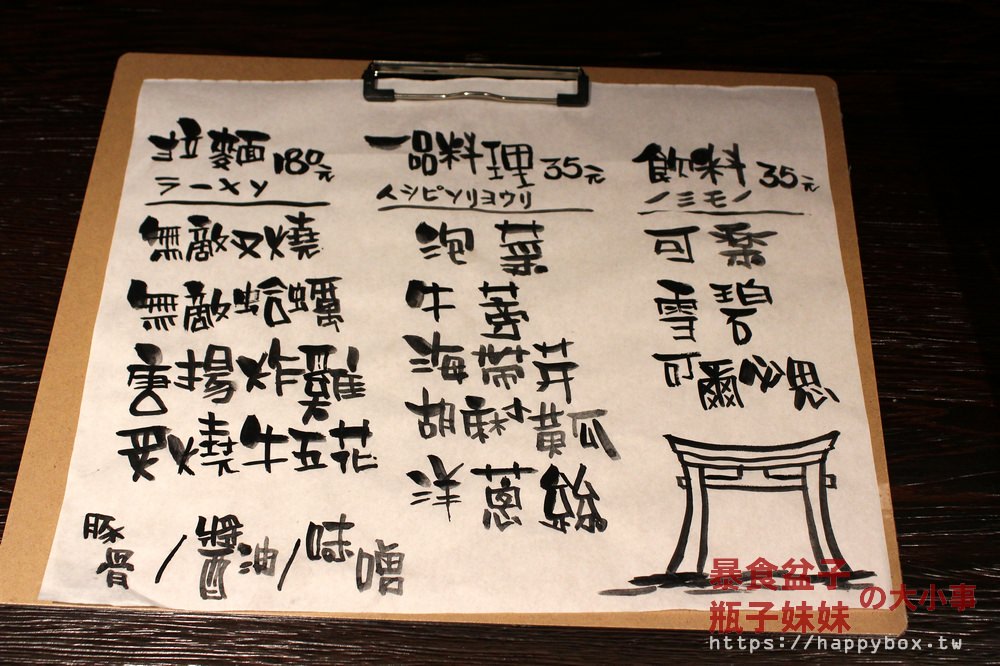 拉麵 180元
ラーメン
無敵叉燒
無敵蛤蠣
唐揚炸雞
炙燒牛五花
豚骨/醬油/味噌
一品料理 35元
イシピンリヨウリ
泡菜
牛蒡
海帶芽
胡麻小黃瓜
洋蔥絲
飲料 35元
ノミモノ
可樂
雪碧
可爾必思
暴食盆子
瓶子妹妹
の大小事
https://happybox.tw